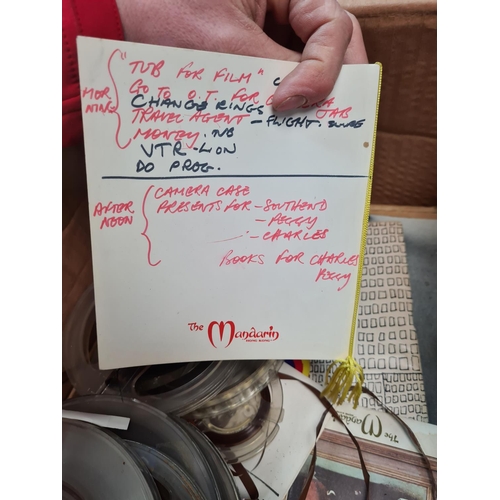 MOR
NING
"TUB FOR FILM"
GO TO O.T. FOR CHOLERA JAB
CHANGE RINGS
TRAVEL AGENT - FLIGHT.
MONEY. NB
VTR - LION
DO PROG.
AFTER
NOON
CAMERA CASE
PRESENTS FOR - SOUTHEND
- PEGGY
- CHARLES
BOOKS FOR CHARLES
PEGGY
The Mandarin
HONG KONG
The Mandarin